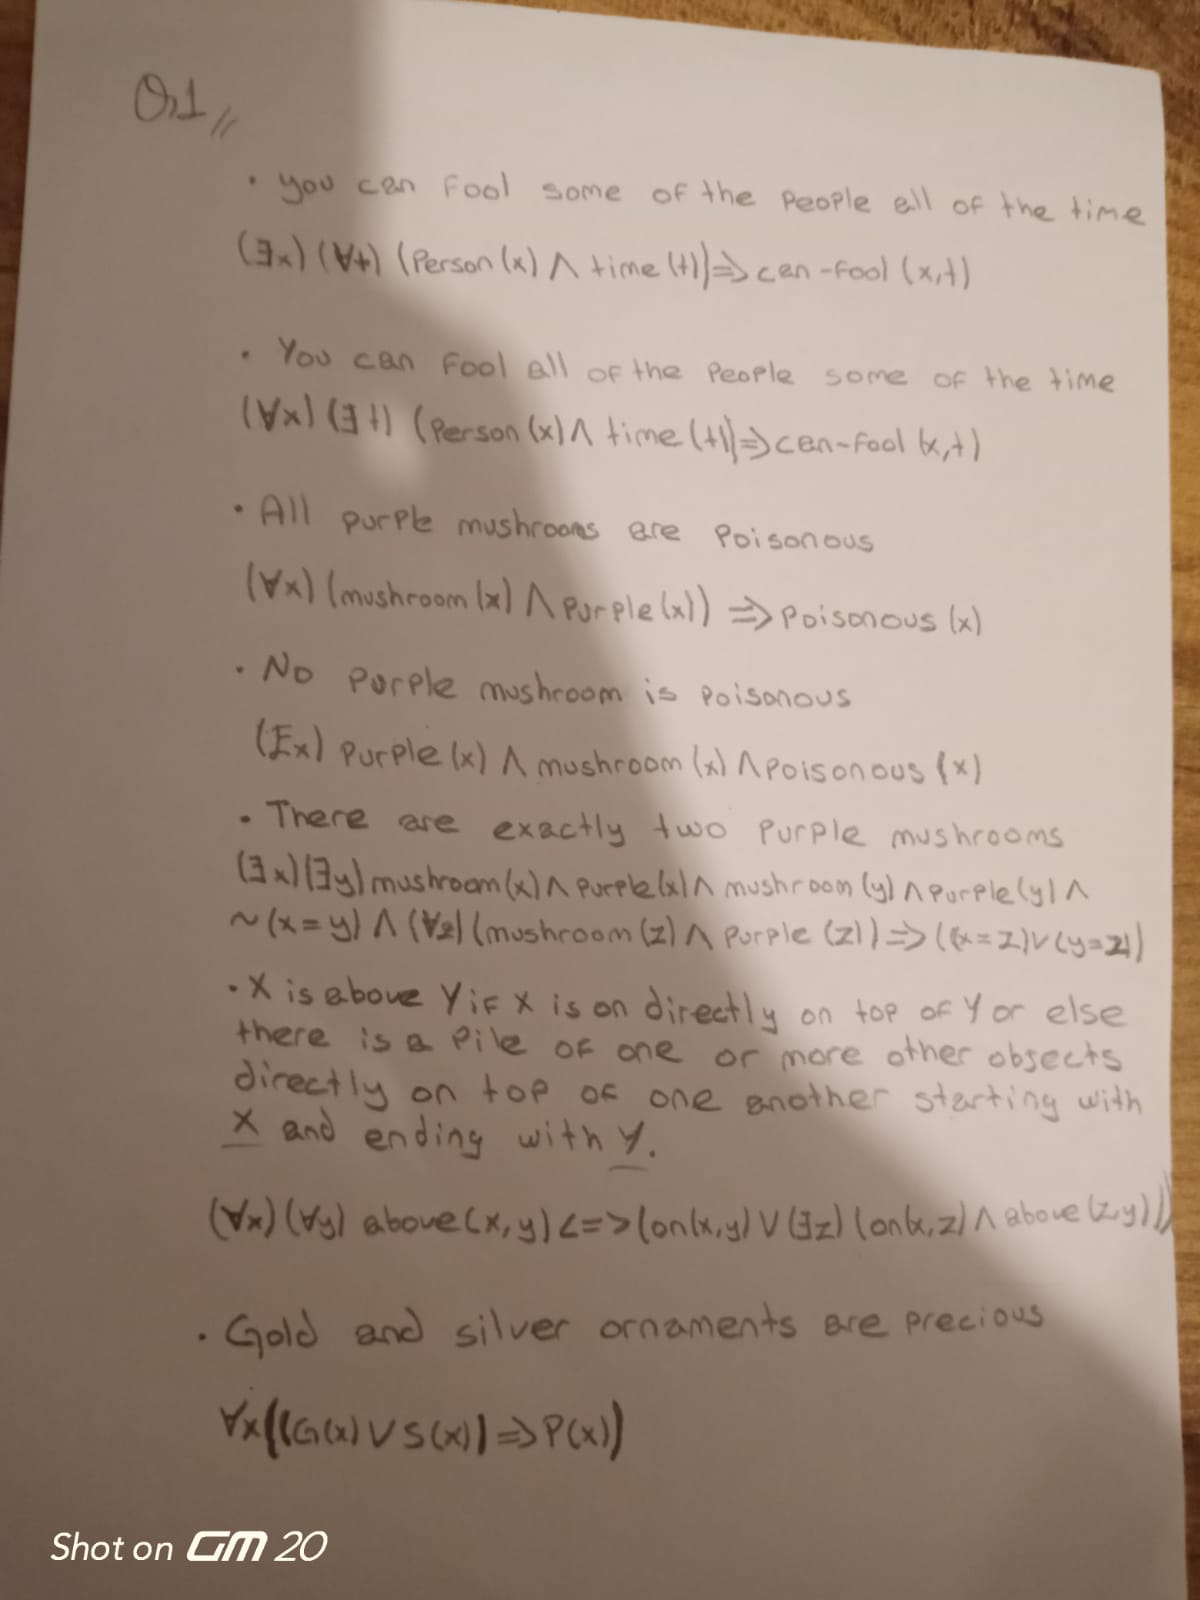 Q1//
• you can fool some of the people all of the time
(∃x) (∀t) (Person (x) ∧ time (t)) => can-fool (x,t)
• You can fool all of the people some of the time
(∀x) (∃t) (Person (x) ∧ time (t)) => can-fool (x,t)
• All purple mushrooms are Poisonous
(∀x) (mushroom (x) ∧ Purple (x)) => Poisonous (x)
• No Purple mushroom is Poisonous
(Ex) Purple (x) ∧ mushroom (x) ∧ Poisonous (x)
• There are exactly two Purple mushrooms
(∃x) (∃y) mushroom (x) ∧ Purple (x) ∧ mushroom (y) ∧ Purple (y) ∧
~ (x = y) ∧ (∀z) (mushroom (z) ∧ Purple (z)) => ((x = z) ∨ (y = z))
• X is above Y if X is on directly on top of Y or else
there is a Pile of one or more other objects
directly on top of one another starting with
X and ending with Y.
(∀x) (∀y) above (x, y) <=> (on(x,y) ∨ (∃z) (on(x,z) ∧ above (z,y)))
• Gold and silver ornaments are precious
∀x((G(x) ∨ S(x)) => P(x))
Shot on GM 20